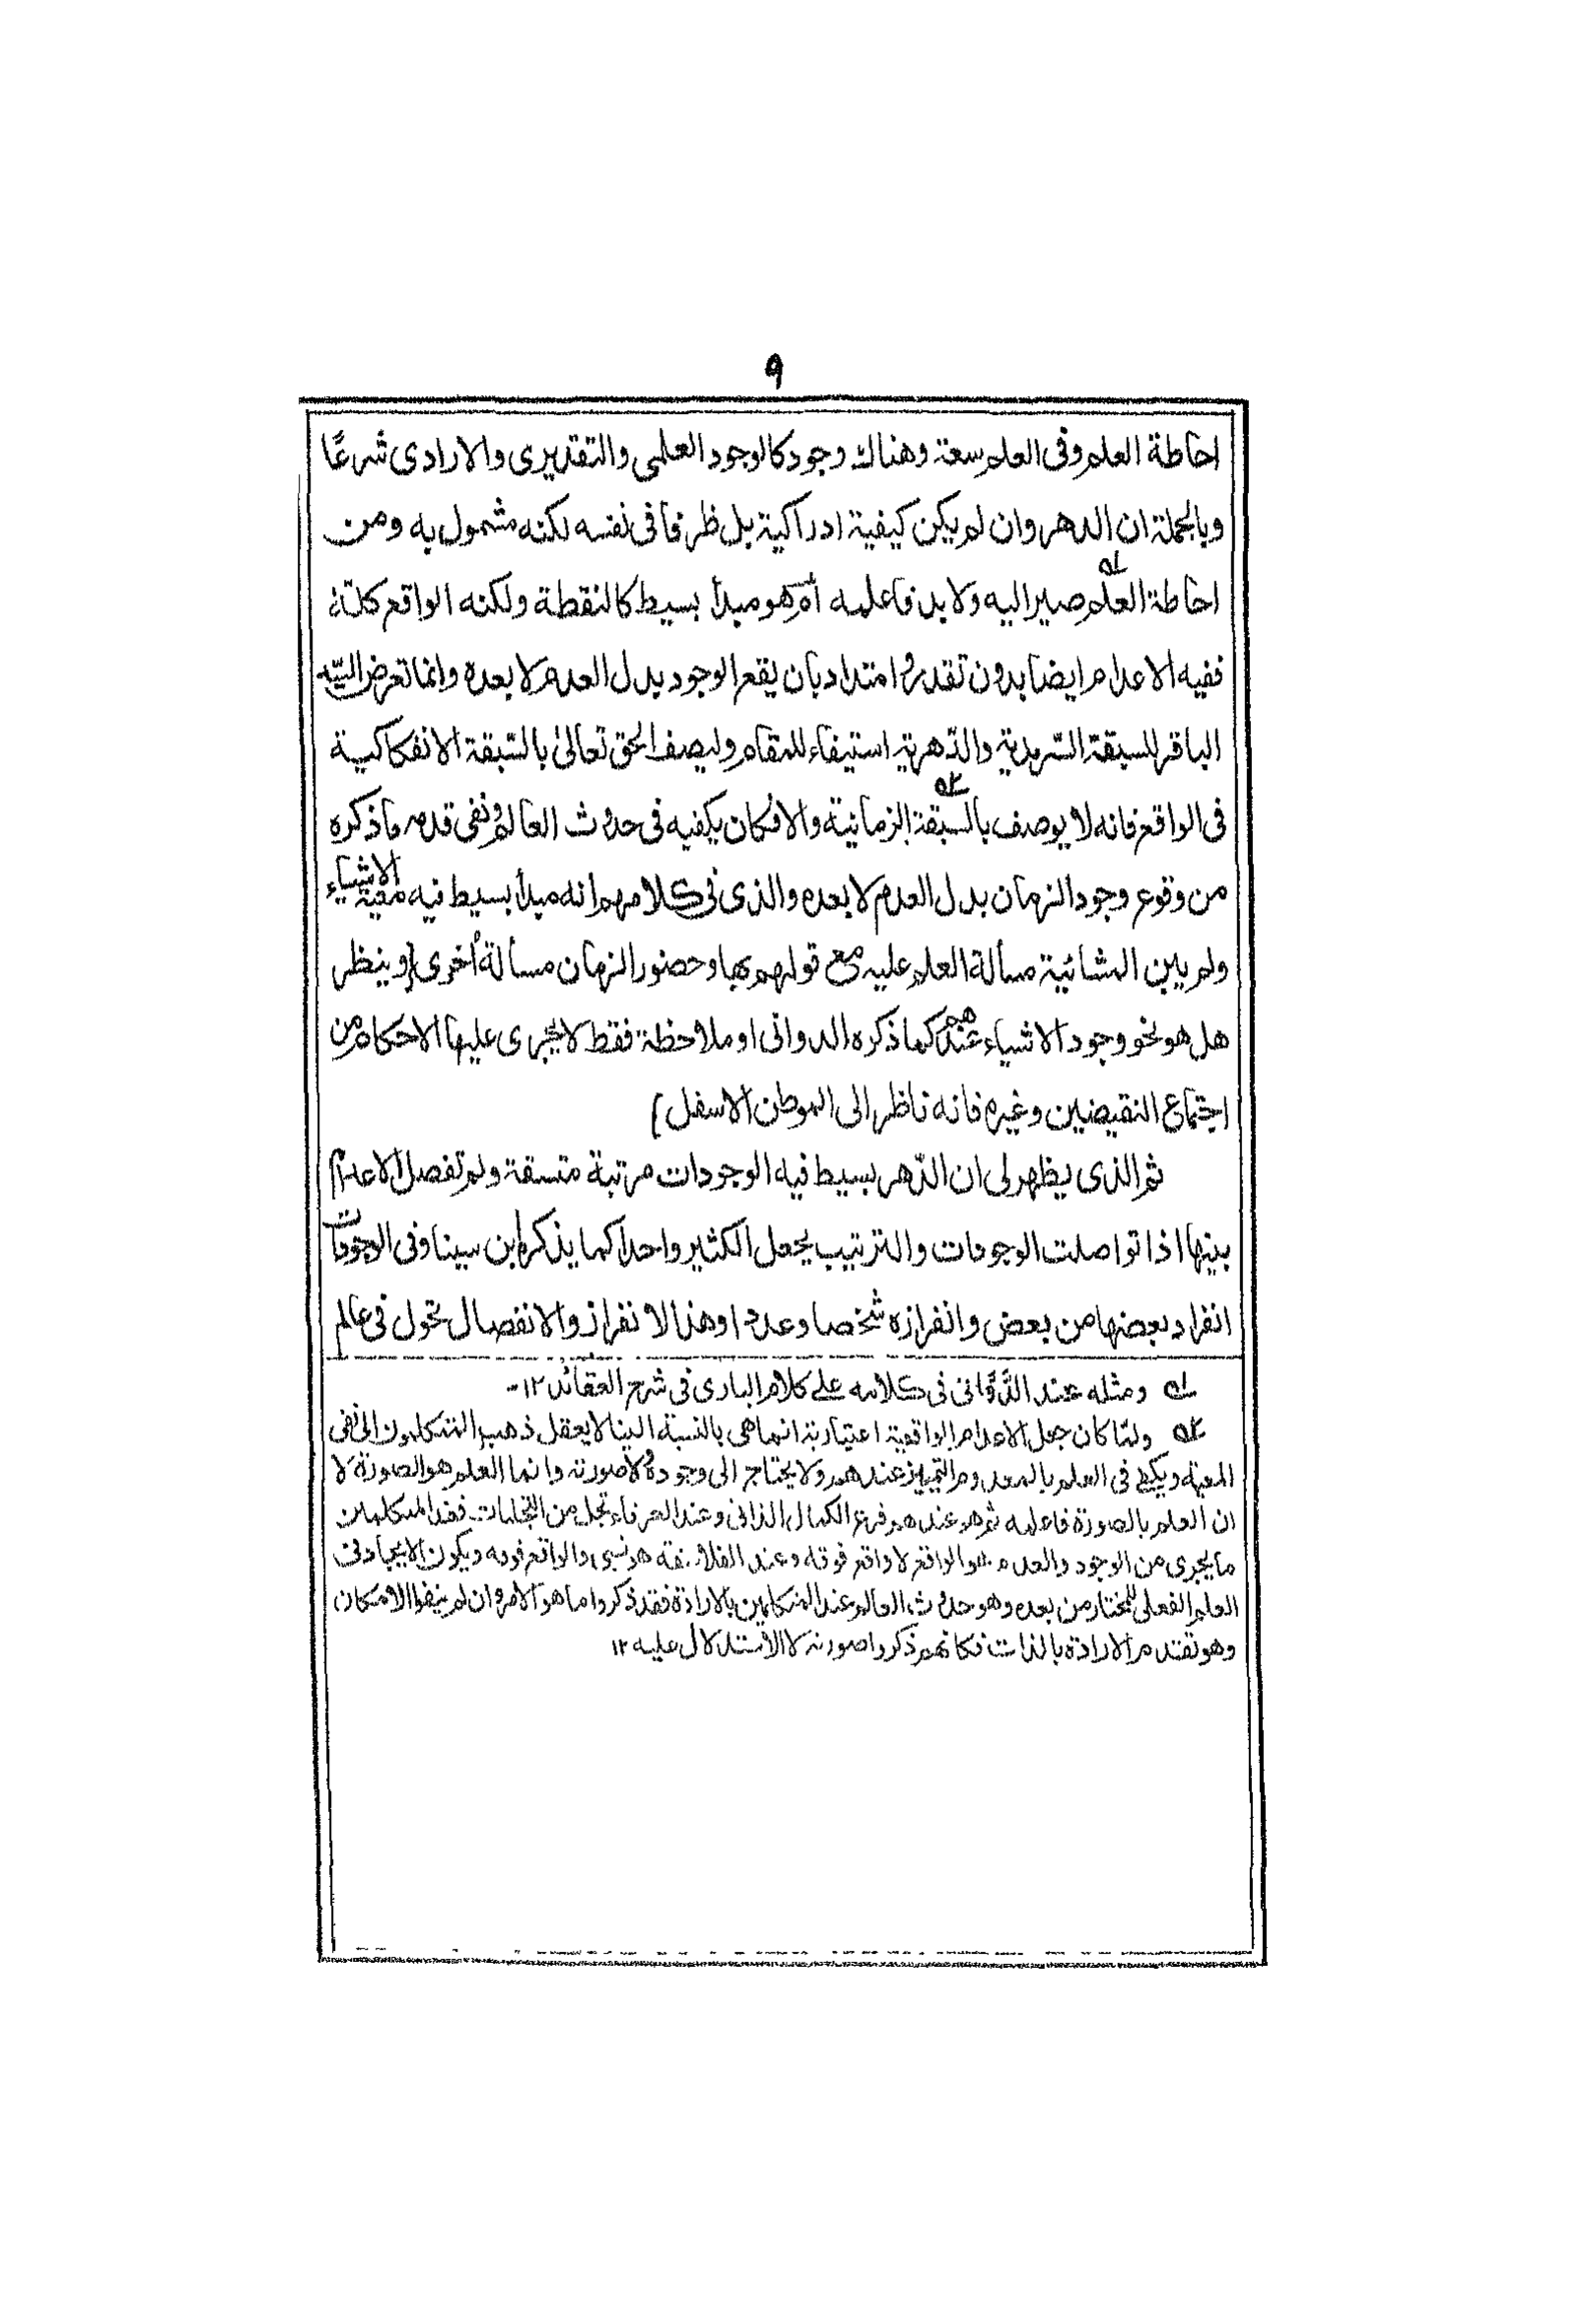 ٩
احاطة العلم وفى العلم سعة وهناك وجود كالوجود العلمى والتقديرى والارادى شرعًا
وبالجملة ان الدهر وان لم يكن كيفية ادراكية بل ظرفا فى نفسه لكنه مشمول به ومن
احاطة العلم ؎۱ صير اليه ولا بد فاعلمه اٰه هو مبدأ بسيط كالنقطة ولكنه الواقع كلّه
ففيه الاعدام ايضا بدون تقدر وامتداد بان يقع الوجود بدل العدم لا بعده وانما تعرض السّيد
الباقر للسبقة السّرمدية والدّهرية استيفاء للمقام وليصف الحق تعالىٰ بالسّبقة الانفكاكية
فى الواقع فانه لا يوصف بالسبقة ؎۲ الزمانية والافكان يكفيه فى حدوث العالم ونفى قدمه ماذكره
من وقوع وجود الزمان بدل العدم لا بعده والذى فى كلامهم انه مبدأ بسيط فيه معية الاشياء
ولم يبن المشائية مسألة العلم عليه مع قولهم بها وحضور الزمان مسألة اُخرى (وينظر
هل هو نحو وجود الاشياء عندهم كما ذكره الدوانى او ملاحظة فقط لا يجرى عليها الاحكام من
اجتماع النقيضين وغيره فانه ناظر الى الموطن الاسفل)
ثم الذى يظهر لى ان الدّهر بسيط فيه الوجودات مرتبة متسقة ولم تفصل الاعدام
بينها اذا تواصلت الوجودات والترتيب يجعل الكثير واحدا كما يذكره ابن سينا وفى الوجودات
انفراد بعضها من بعض وانفرازه شخصا وعددا وهذا الانفراز والانفصال تحول فى عالم
؎۱ ومثله عند الدَّوَّانى فى كلامه علے كلام البارى فى شرح العقائد ۱۲-
؎۲ ولمّا كان جعل الاعدام الواقعية اعتبارية انما هى بالنسبة الينا لا يعقل ذهب المتكلمون الى نفى
المعية ويكفى فى العلم بالمعدوم التمييز عندهم ولا يحتاج الى وجوده ولا صورته وانما العلم هو الصورة لا
ان العلم بالصورة فاعلمه ثم هو عندهم فرع الكمال الذاتى وعند العرفاء تجل من التجليات فعند المتكلمين
ما يجرى من الوجود والعدم هو الواقع لا واقع فوقه وعند الفلاسفة هو نسبى والواقع فوقه ويكون الايجاد فى
العلم الفعلى للمختار من بعده وهو حدوث العالم عند المتكلمين بالارادة فقد ذكروا ما هو الامر وان لم ينفوا الامكان
وهو تقدم الارادة بالذات فكانهم ذكروا صورته لا الاستدلال عليه ۱۲